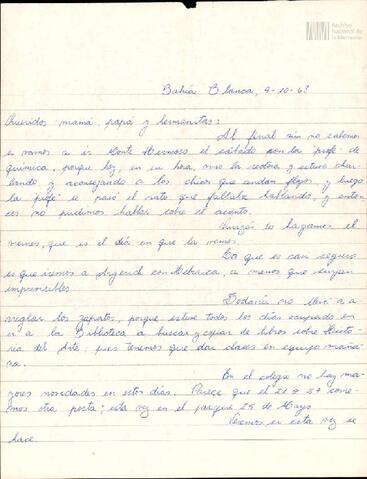 Archivo
Nacional de
la Memoria
Bahía Blanca, 9-10-63
Queridos mamá, papá y hermanitas:
Al final aún no sabemos
si vamos a ir Monte Hermoso el sábado con la profe de
química, porque hoy, en su hora, vino la rectora y estuvo char-
lando y aconsejando a los chicos que andan flojos, y luego
la profe se pasó el rato que faltaba hablando, y enton-
ces no pudimos hablar sobre el asunto.
Quizás lo hagamos el
viernes, que es el día en que la vemos.
Lo que es casi seguro
es que iremos a con Hebraica, a menos que surjan
imprevistos.
Todavía no llevé a a-
rreglar los zapatos, porque estuve todos los días ocupado en
ir a la Biblioteca a buscar y copiar de libros sobre Histo-
ria del Arte, pues tenemos que dar clases en equipo maña-
na.
En el colegio no hay ma-
yores novedades en estos días. Parece que el 21 ó 24 corre-
mos otra posta; esta vez en el parque 25 de Mayo.
Veremos si esta vez se
hace